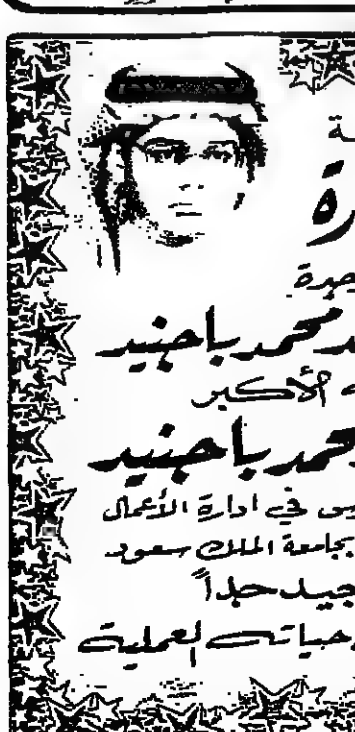 ـة
ـرة
ـد محمد باجنيد
الأكبر
محمد باجنيد
ـس في ادارة الأعمال
بجامعة الملك سعود
جيد جداً
حياته العملية